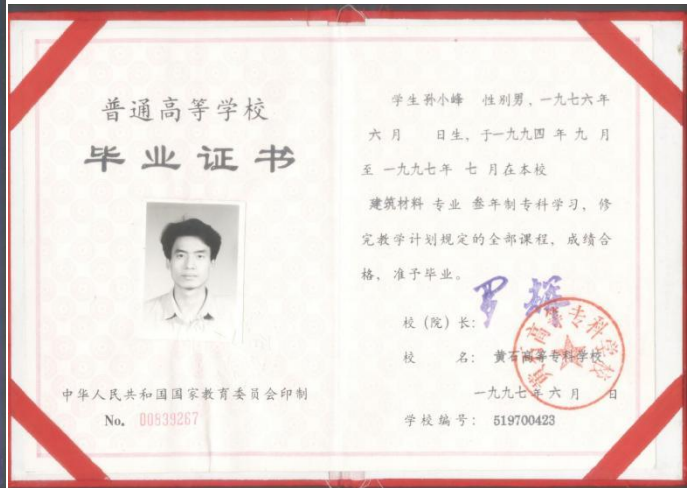 普通高等学校
毕业证书
中华人民共和国国家教育委员会印制
No. 00839267
学生孙小峰 性别男，一九七六年
六月 日生，于一九九四年九月
至一九九七年七月在本校
建筑材料 专业 叁年制专科学习，修
完教学计划规定的全部课程，成绩合
格，准予毕业。
校（院）长：罗辉
校 名：黄石高等专科学校
一九九七年六月 日
学校编号：519700423
黄石高等专科学校